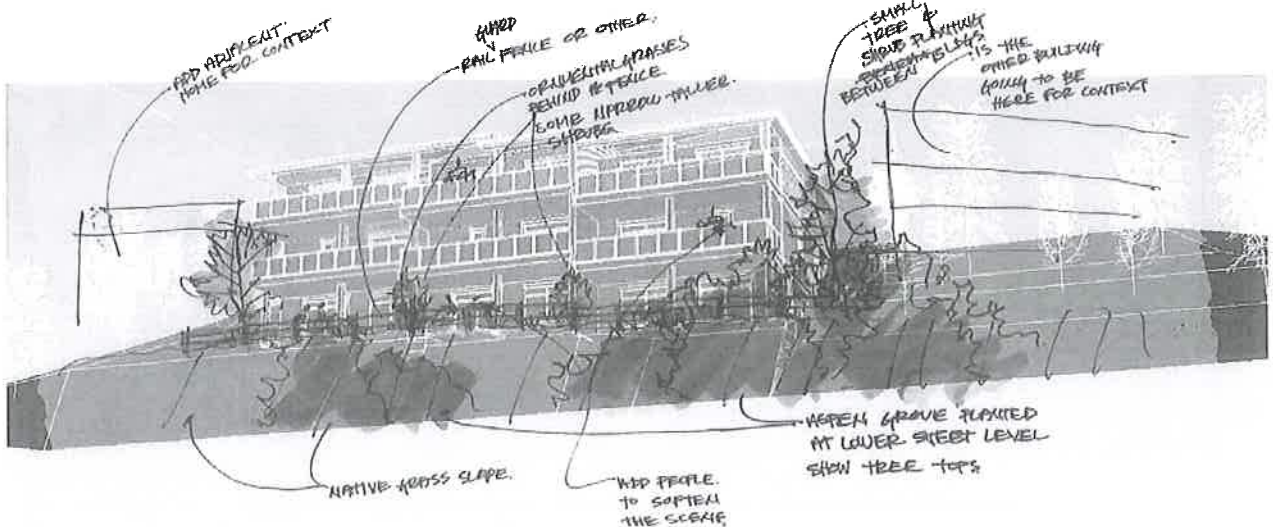 ADD ADJACENT
HOME FOR CONTEXT
GUARD
RAIL FENCE OR OTHER.
ORNAMENTAL GRASSES
BEHIND FENCE
SOME NARROW TALLER
SHRUBS
SMALL
TREE &
SHRUB PLANTING
BETWEEN BLDGS
IS THE
OTHER BUILDING
GOING TO BE
HERE FOR CONTEXT
NATIVE GRASS SLOPE.
ADD PEOPLE.
TO SOFTEN
THE SCENE
ASPEN GROVE PLANTED
AT LOWER STREET LEVEL
SHOW TREE TOPS